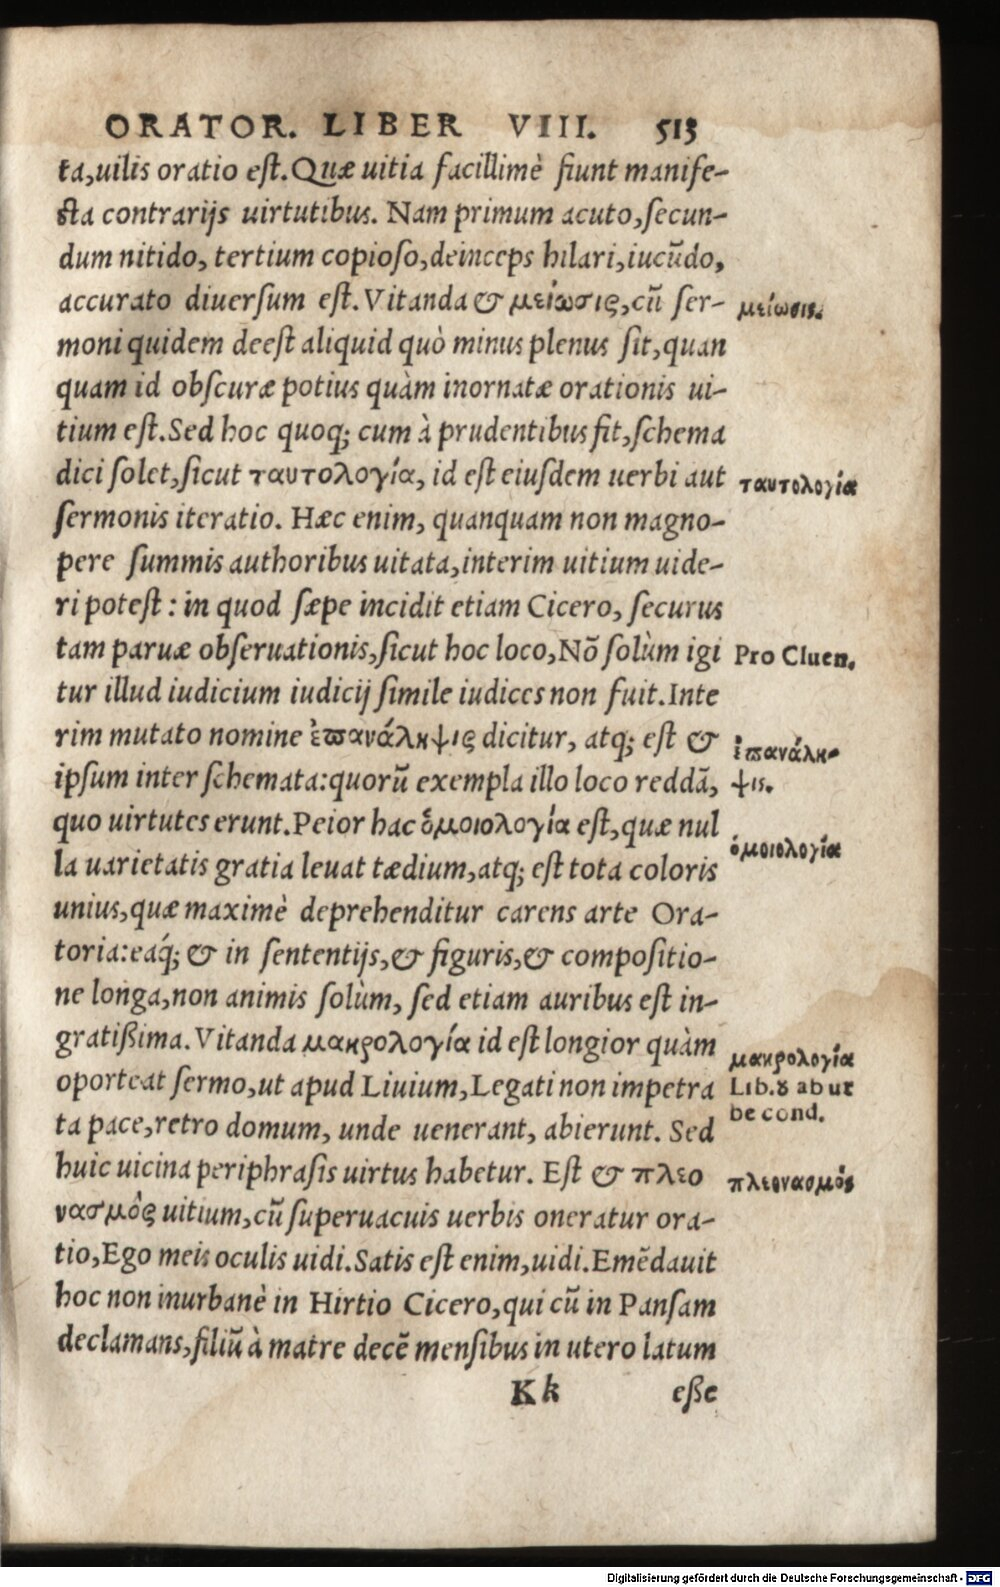 ORATOR. LIBER VIII. 513
ta,uilis oratio eſt.Quæ uitia facillimè fiunt manife-
ſta contrarijs uirtutibus. Nam primum acuto,ſecun-
dum nitido, tertium copioſo,deinceps hilari,iucũdo,
accurato diuerſum eſt.Vitanda & μείωσις,cũ ſer-
moni quidem deeſt aliquid quò minus plenus ſit,quan
quam id obſcuræ potius quàm inornatæ orationis ui-
tium eſt.Sed hoc quoq; cum à prudentibus fit,ſchema
dici ſolet,ſicut ταυτολογία, id eſt eiuſdem uerbi aut
ſermonis iteratio. Hæc enim, quanquam non magno-
pere ſummis authoribus uitata,interim uitium uide-
ri poteſt : in quod ſæpe incidit etiam Cicero, ſecurus
tam paruæ obſeruationis,ſicut hoc loco,Nõ ſolùm igi
tur illud iudicium iudicij ſimile iudices non fuit.Inte
rim mutato nomine ἐπανάληψις dicitur, atq; eſt &
ipſum inter ſchemata:quorũ exempla illo loco reddã,
quo uirtutes erunt.Peior hac ὁμοιολογία eſt,quæ nul
la uarietatis gratia leuat tædium,atq; eſt tota coloris
unius,quæ maximè deprehenditur carens arte Ora-
toria:eaq́; & in ſententijs,& figuris,& compoſitio-
ne longa,non animis ſolùm, ſed etiam auribus eſt in-
gratißima.Vitanda μακρολογία id eſt longior quàm
oporteat ſermo,ut apud Liuium,Legati non impetra
ta pace,retro domum, unde uenerant, abierunt. Sed
huic uicina periphraſis uirtus habetur. Eſt & πλεο
νασμὸς uitium,cũ ſuperuacuis uerbis oneratur ora-
tio,Ego meis oculis uidi.Satis eſt enim,uidi.Emẽdauit
hoc non inurbanè in Hirtio Cicero,qui cũ in Panſam
declamans,filiũ à matre decẽ menſibus in utero latum
Kk eße
μείωσις.
ταυτολογία
Pro Cluen.
ἐπανάλη-
ψις.
ὁμοιολογία
μακρολογία
Lib.8 ab ur
be cond.
πλεονασμός
Digitalisierung gefördert durch die Deutsche Forschungsgemeinschaft - DFG